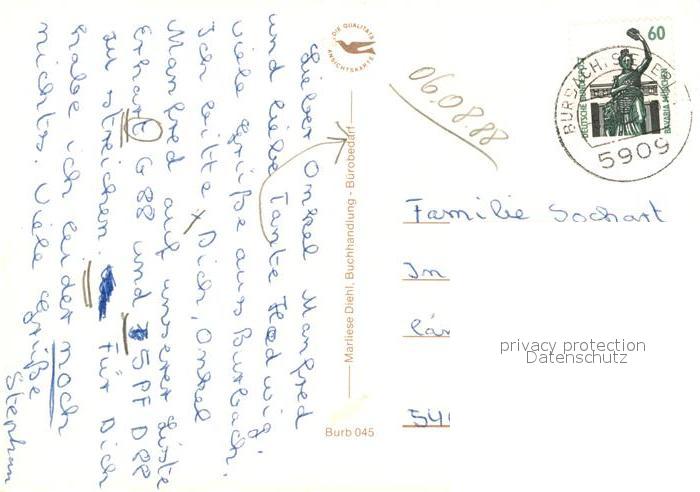 Lieber Onkel Manfred
und liebe Tante Hedwig,
viele Grüße aus Burbach.
Ich bitte Dich, Onkel
Manfred auf unserer Liste
Erhart G 88 und 5 PF D 88
zu streichen. Für Dich
habe ich leider noch
nichts. Viele Grüße
Stephan
DIE QUALITÄTS
ANSICHTSKARTE
Marliese Diehl, Buchhandlung - Bürobedarf
Burb 045
06.08.88
60
DEUTSCHE BUNDESPOST
BAVARIA MÜNCHEN
BURBACH, SIEGERL
5909
Familie Sochart
In
privacy protection
Datenschutz